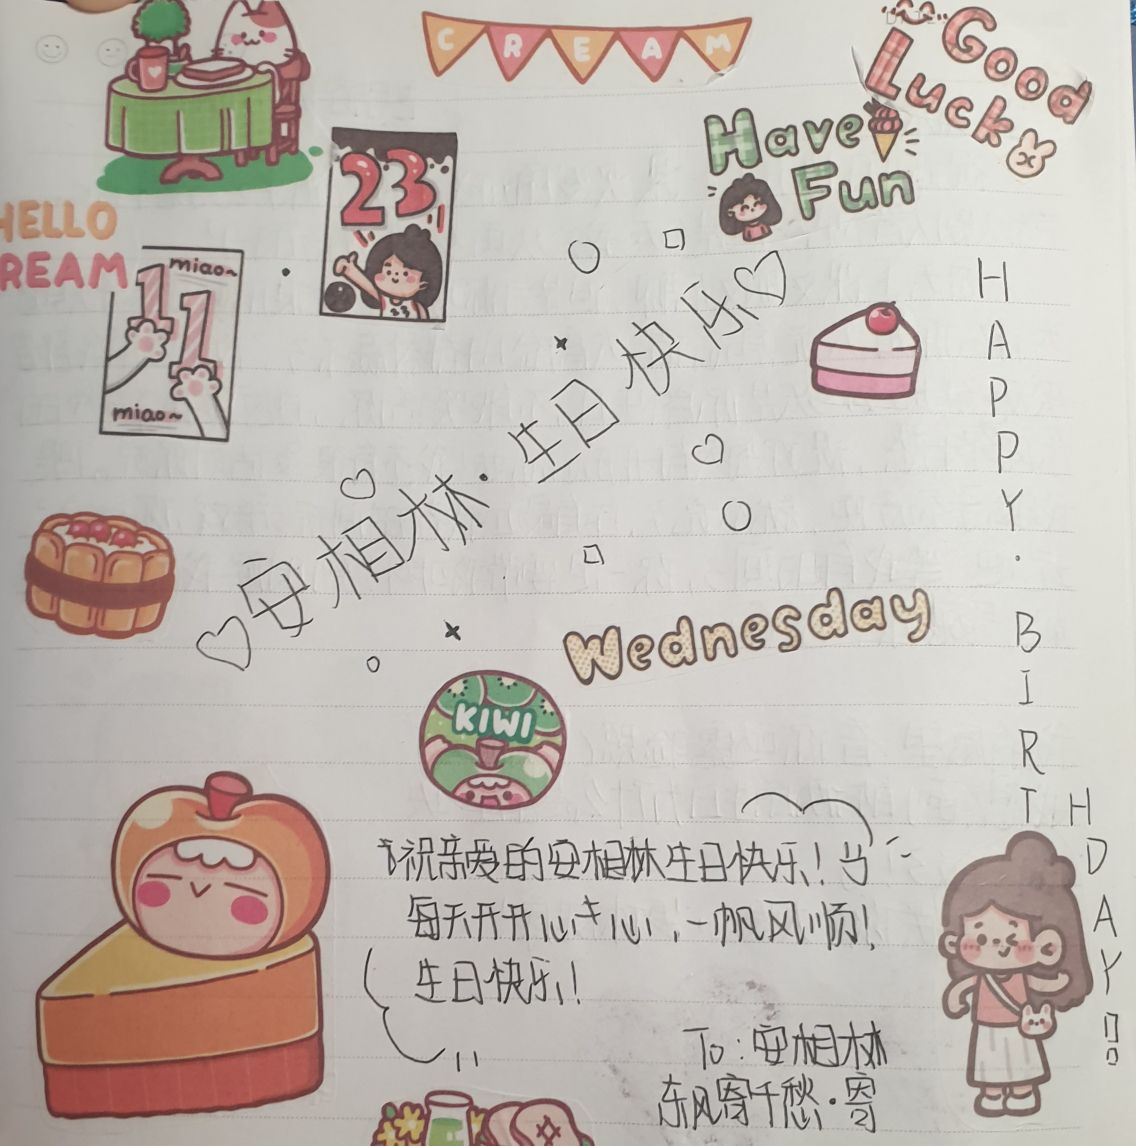 CREAM
Good
Luck
Have
Fun
23
23
HELLO
REAM
miao~
11
miao~
安相林·生日快乐
HAPPY·BIRTHDAY!!
Wednesday
KIWI
祝亲爱的安相林生日快乐！
每天开开心心，一帆风顺！
生日快乐！
To：安相林
东风寄千愁·